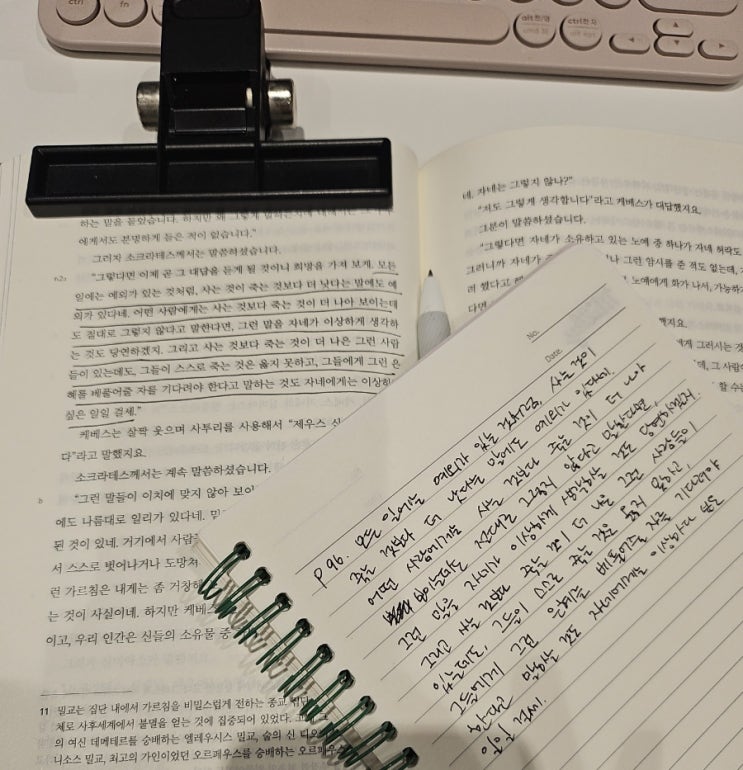 ctrl
fn
alt 한/영
cmd
ctrl 한자
하는 말을 들었습니다. 하지만 왜 그렇게
에게서도 분명하게 들은 적이 없습니다."
그러자 소크라테스께서는 말씀하셨습니다.
62a
"그렇다면 이제 곧 그 대답을 듣게 될 것이니 희망을 가져 보게. 모든
일에는 예외가 있는 것처럼, 사는 것이 죽는 것보다 더 낫다는 말에도 예
외가 있다네. 어떤 사람에게는 사는 것보다 죽는 것이 더 나아 보이는데
도 절대로 그렇지 않다고 말한다면, 그런 말을 자네가 이상하게 생각하
는 것도 당연하겠지. 그리고 사는 것보다 죽는 것이 더 나은 그런 사람
들이 있는데도, 그들이 스스로 죽는 것은 옳지 못하고, 그들에게 그런 은
혜를 베풀어줄 자를 기다려야 한다고 말하는 것도 자네에게는 이상하
싶은 일일 걸세."
케베스는 살짝 웃으며 사투리를 사용해서 "제우스 신
다"라고 말했지요.
소크라테스께서는 계속 말씀하셨습니다.
b
"그런 말들이 이치에 맞지 않아 보이
에도 나름대로 일리가 있다네.
된 것이 있네. 거기에서 사람
서 스스로 벗어나거나 도망쳐
런 가르침은 내게는 좀 거창
는 것이 사실이네. 하지만 케베
이고, 우리 인간은 신들의 소유물 중
11 밀교는 집단 내에서 가르침을 비밀스럽게 전하는 종교 집단
체로 사후세계에서 불멸을 얻는 것에 집중되어 있었다.
의 여신 데메테르를 숭배하는 엘레우시스 밀교, 술의 신 디오
니소스 밀교, 최고의 가인이었던 오르페우스를 숭배하는 오르페우스
네. 자네는 그렇지 않나?"
"저도 그렇게 생각합니다"라고 케베스가 대답했지요.
그분이 말씀하셨습니다.
"그렇다면 자네가 소유하고 있는 노예 중 하나가 자네 허락도
그러니까 자네가 나 그런 암시를 준 적도 없는데,
려 했다고 노예에게 화가 나서, 가능하
다면
했지요.
에게 그러시는 것
데, 그 사람
할 수
No.
Date
p 96. 모든 일에는 예외가 있는 것처럼, 사는 것이
죽는 것보다 더 낫다는 말에도 예외가 있다네.
어떤 사람에게는 사는 것보다 죽는 것이 더 나아
보이는데도 절대로 그렇지 않다고 말한다면,
그런 말을 자네가 이상하게 생각하는 것도 당연하겠지.
그리고 사는 것보다 죽는 것이 더 나은 그런 사람들이
있는데도, 그들이 스스로 죽는 것은 옳지 못하고,
그들에게 그런 은혜를 베풀어줄 자를 기다려야
한다고 말하는 것도 자네에게는 이상하다
싶은 일일